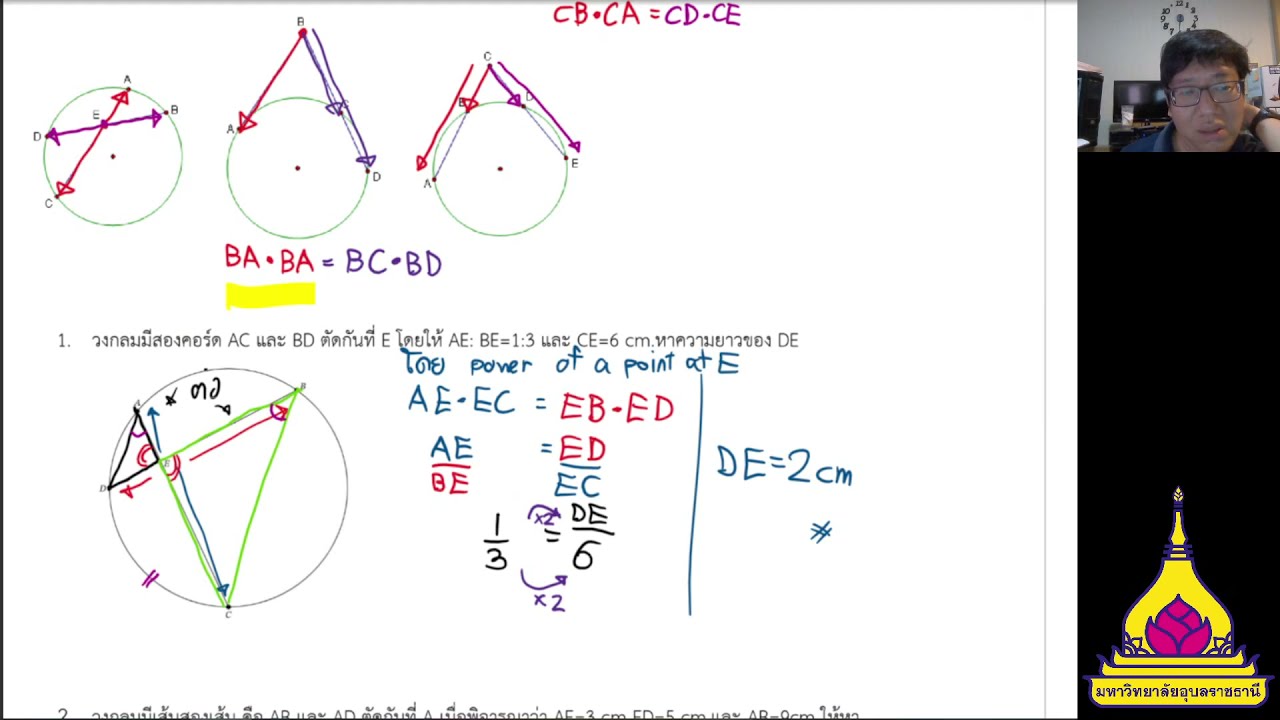 CB·CA = CD·CE
B
A
E
B
D
C
A
C
D
C
B
D
A
E
BA·BA = BC·BD
1. วงกลมมีสองคอร์ด AC และ BD ตัดกันที่ E โดยให้ AE: BE=1:3 และ CE=6 cm.หาความยาวของ DE
โดย power of a point at E
AE·EC = EB·ED
AE/BE = ED/EC
1/3 = DE/6
×2
×2
DE=2cm
*
A
B
E
D
C
มหาวิทยาลัยอุบลราชธานี
2. วงกลมมีเส้นสองเส้น คือ AB และ AD ตัดกันที่ A เมื่อพิจารณาว่า AE=3 cm ED=5 cm และ AB=9cm ให้หา